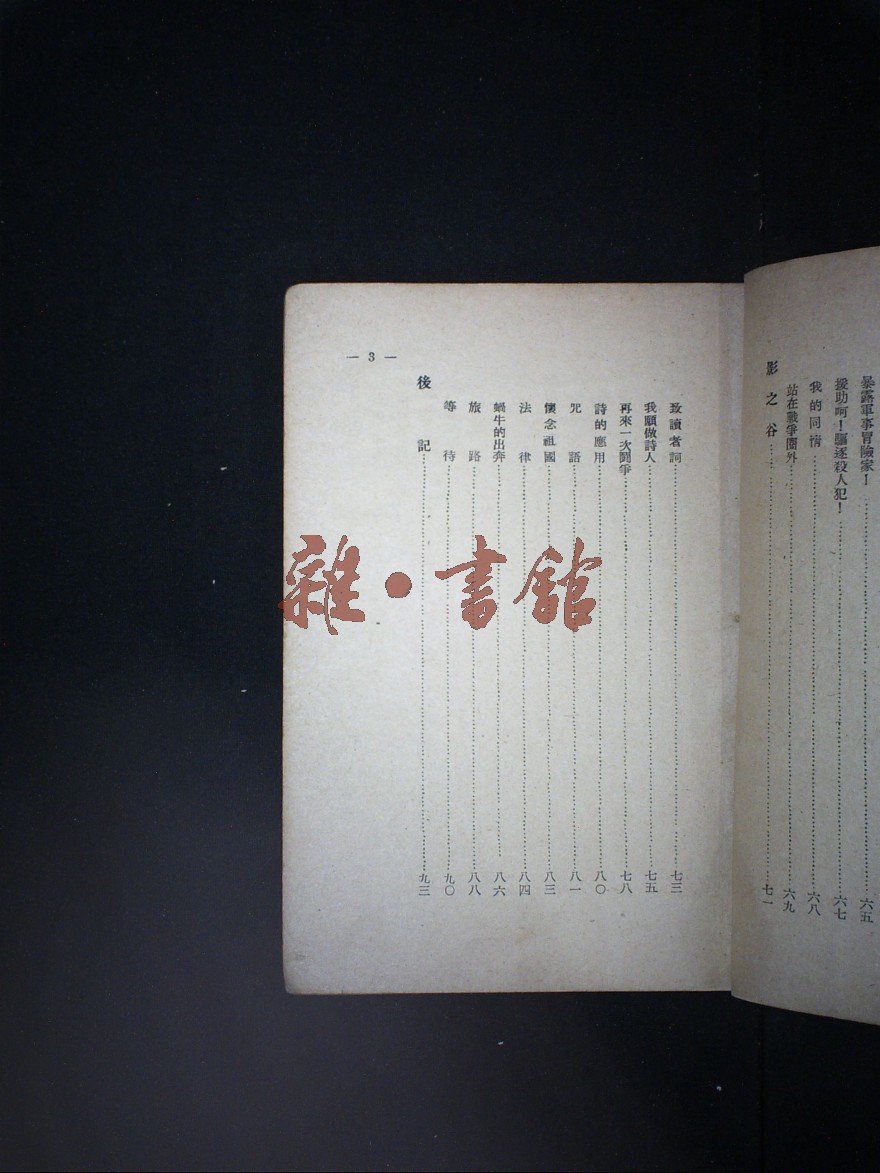 暴露軍事冒險家！……六五
援助呵！驅逐殺人犯！……六七
我的同情……六八
站在戰爭圈外……六九
影之谷……七一
致讀者詞……七三
我願做詩人……七五
再來一次鬪爭……七八
詩的應用……八〇
咒語……八一
懷念祖國……八三
法律……八四
蝸牛的出奔……八六
旅路……八八
等待……九〇
後記……九三
— 3 —
雜·書館